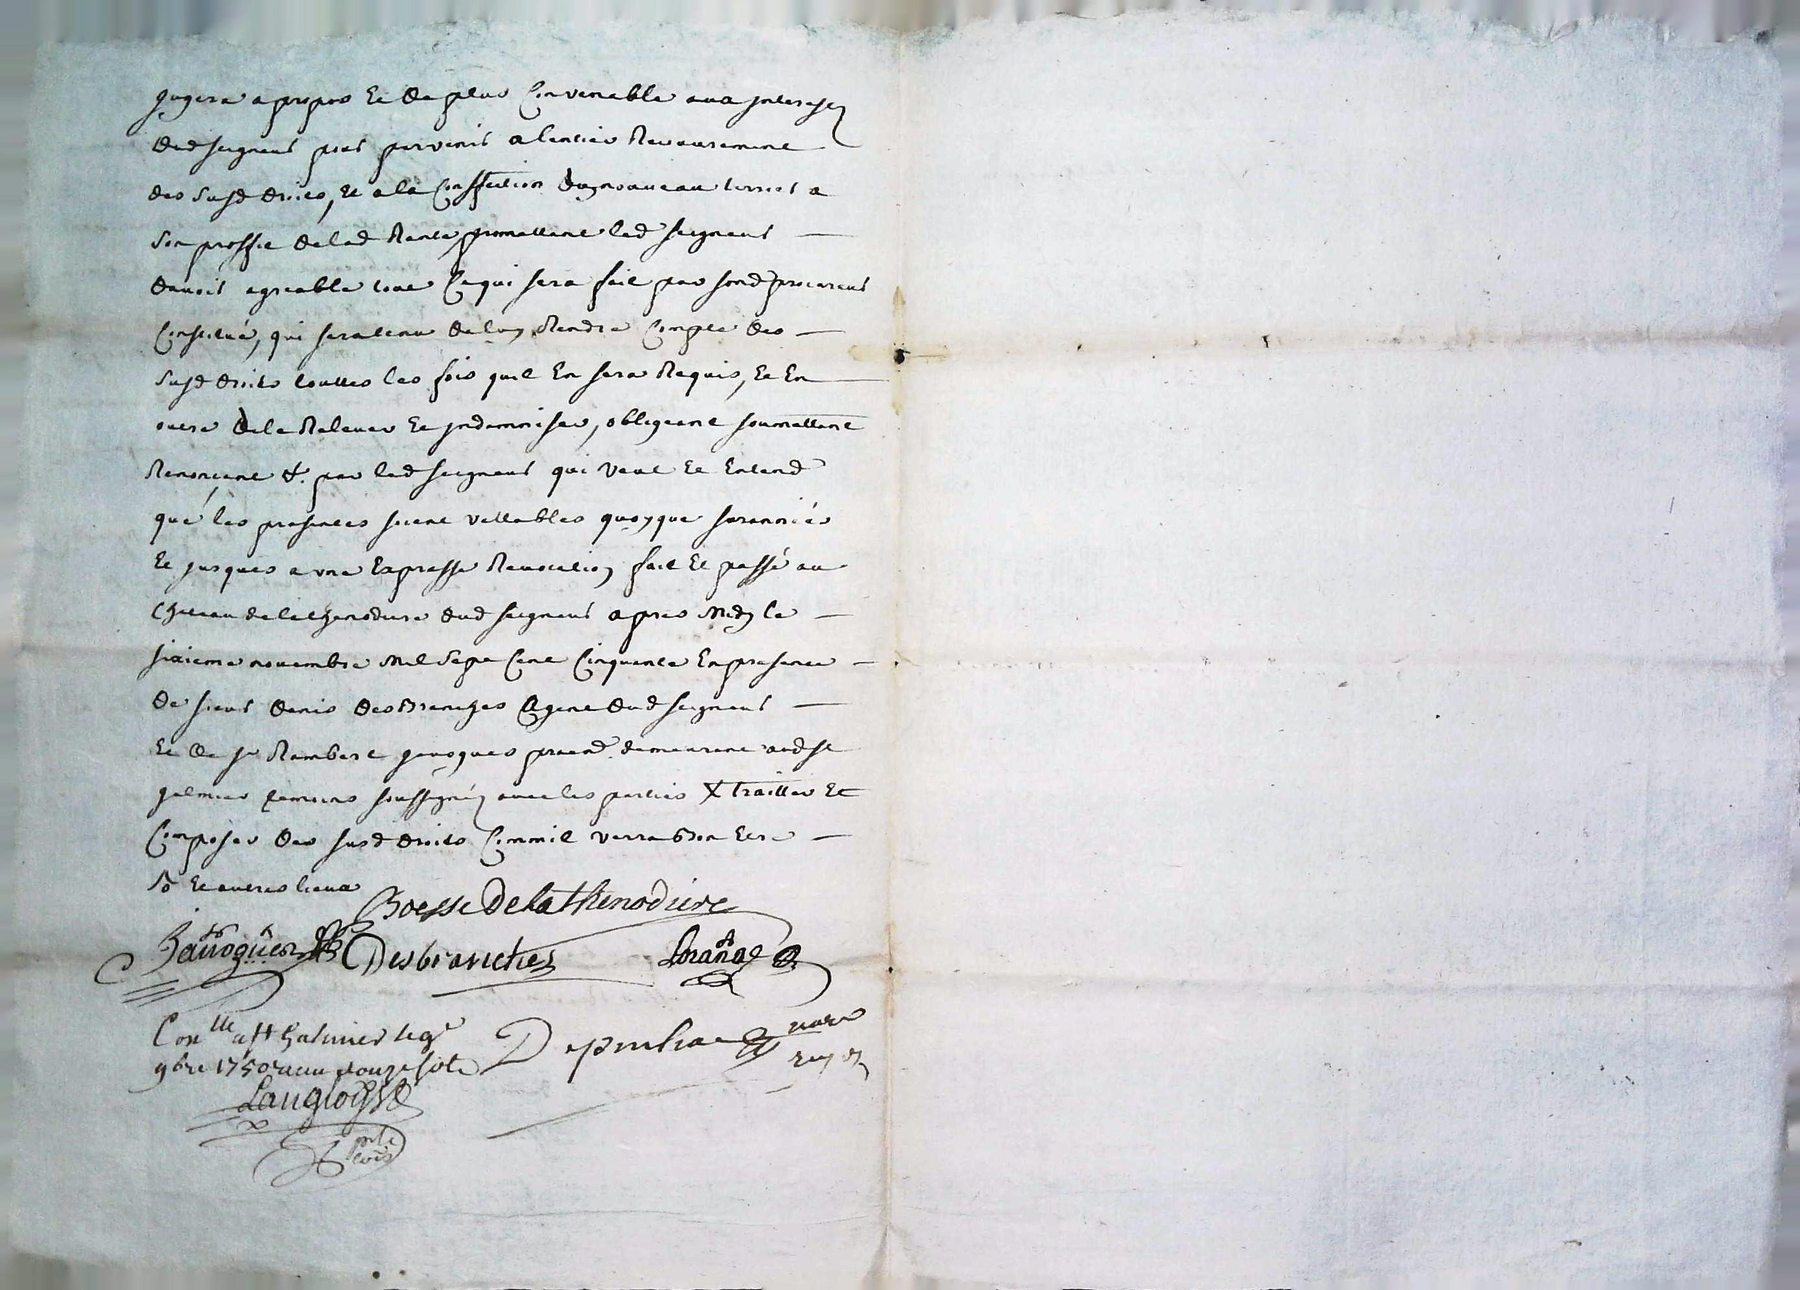 jugera apropos Et de plus Convenable aux Interests
dud seigneur pour parvenir a lentier Recouvrement
des susd droits, Et ala Confection dug nouveau terrier a
son proffit de lad Rente, promettant led seigneur
davoir agreable tout Ce qui sera fait par sond procureur
Constitué, qui sera tenu de luy Rendre Compte des
susd droits touttes les fois quil En sera Requis, Et En
outre de le Relever Et Indemniser, obligeant soumettant
Renonçant &. par led seigneur qui veut Et Entend
que les presentes soient vallables quoyque surannées
Et jusques a une Expresse Revocation fait Et passé au
Chateau de la thenodiere dud seigneur apres Midy le
sixieme novembre Mil Sept Cent Cinquante En presence
de sieur denis desbranches Agent dud seigneur
Et de sr Rambert javogues pratn demeurant aud st
galmier temoins soussignéz avec les parties X traitter Et
Composer des susd droits Comme il verra bon Etre
So Et autres lieux
Boesse De la thenodiere
Javogues Desbranches
Conlle a st Galmier le 9e
9bre 1750 Reçu douze sols
Langlois